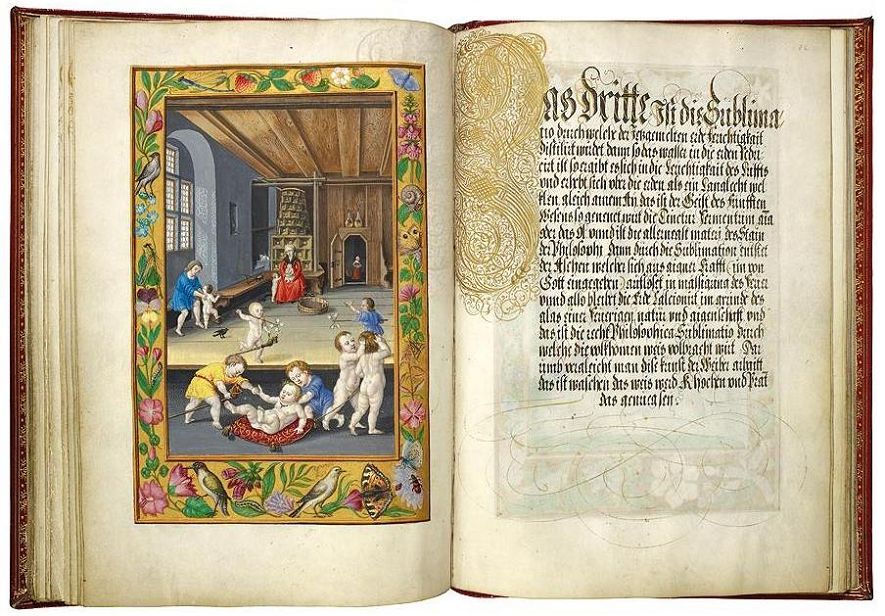 Das Dritte Ist die Sublima
tio durch welche der Jetzgemelten erde Feuchtigkait
distilirt wirdet dann so das wasser in die erden Redu
ciert ist so ergibt es sich in die Leychtigkait des Luffts
und erhebt sich vber die erden als ein Langlecht wol
cklen gleich ainem das ist der Geist des Funfften
wesens so genenet wirt die Tinctur Fermentum aia
oder das Ol vnnd ist die allernegst materi des Stain
der Philosophi Dann durch die Sublimation entstet
der Aschen welcher sich aus aigner krafft im von
Gott eingegeben auflöst in massigung des Feuer
vnnd also bleibt die Erde im grunde des
glas einer Feuerigen natur vnd aigenschafft vnd
das ist die recht Philosophica Sublimatio durch
welche die volkhomen weis volbracht wirt Dar
umb vergleicht man dise kunst der Weiber arbait
das ist waschen das weis werd Khochen vnd Prat
das genuegsen.